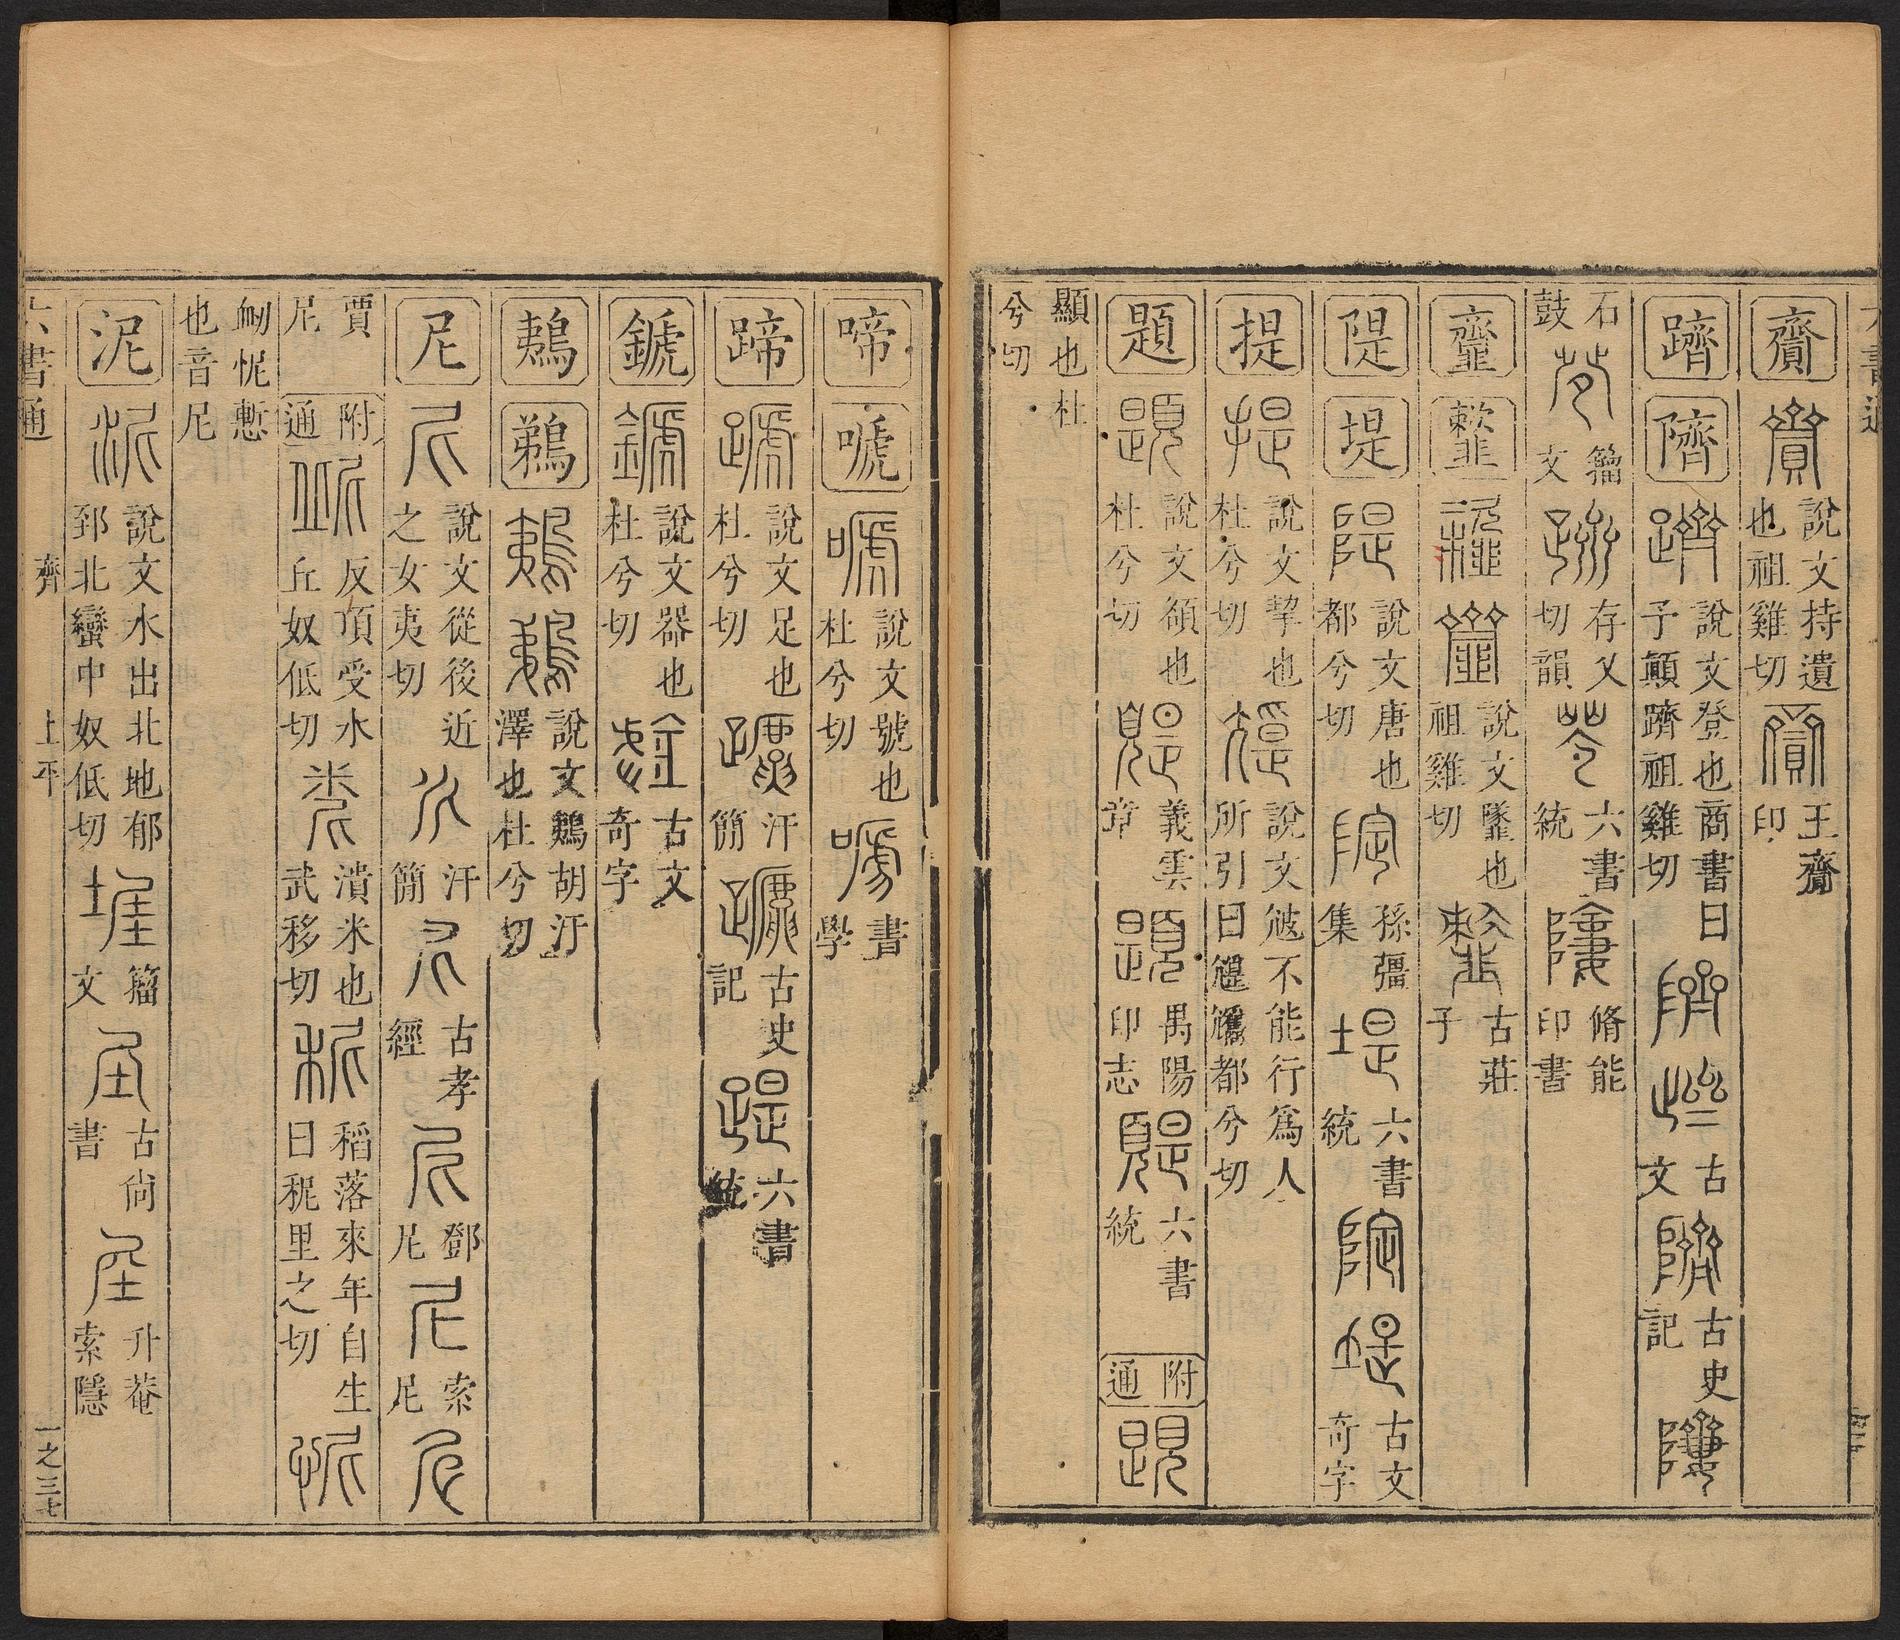 齎 說文持遺也祖雞切 王齎印
躋 隮 說文登也商書曰予顛躋祖雞切 古文 古史記
石鼓 籀文 存乂切韻 六書統 脩能印書
說文墬也祖雞切 古莊子
隄 堤 說文唐也都兮切 孫彊集 六書統 古文奇字
提 說文挈也杜兮切 說文㞂不能行爲人所引曰𡰢𡰠都兮切
題 說文頟也杜兮切 義雲章 禺陽印志 六書統 附通
顯也杜兮切
啼 嗁 說文號也杜兮切 書學
蹄 說文足也杜兮切 汗簡 古史記 六書統
鍗 說文器也杜兮切 古文奇字
鴺 鵜 說文鴺胡汙澤也杜兮切
尼 說文從後近之女夷切 汗簡 古孝經 鄧尼 索尼
賈尼 附通 反頂受水丘奴低切 潰米也武移切 稻落來年自生曰秜里之切
衂怩慙也音尼
泥 說文水出北地郁郅北蠻中奴低切 籀文 古尙書 升菴索隱
六書通 齊 上平 一之三七